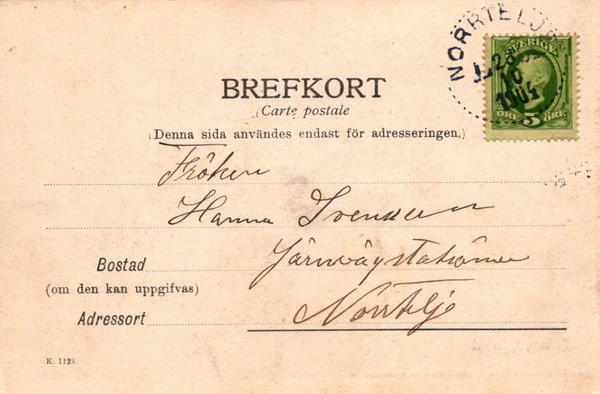 NORRTELJE
SVERIGE
1904
5
ÖRE ÖRE
BREFKORT
Carte postale
(Denna sida användes endast för adresseringen.)
Fröken
Hanna Svensson
Järnvägstationen
Norrtelje
Bostad
(om den kan uppgifvas)
Adressort
K. 1128